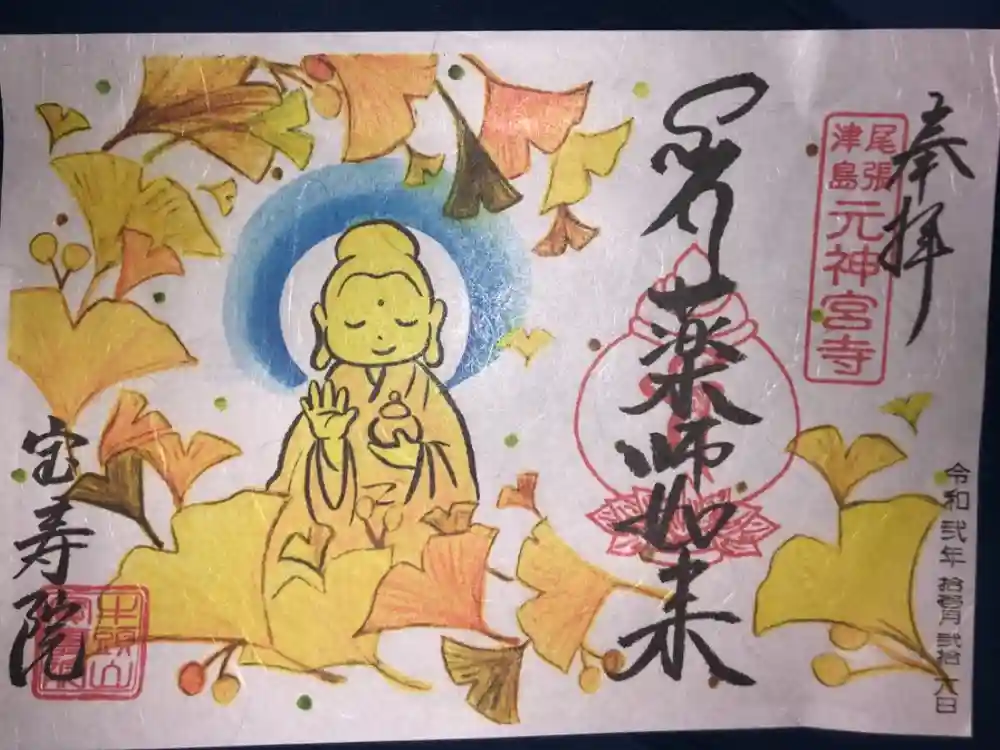 奉拝
尾張
津島
元神宮寺
薬師如来
令和弐年 拾壱月 弐拾六日
宝寿院
牛頭山